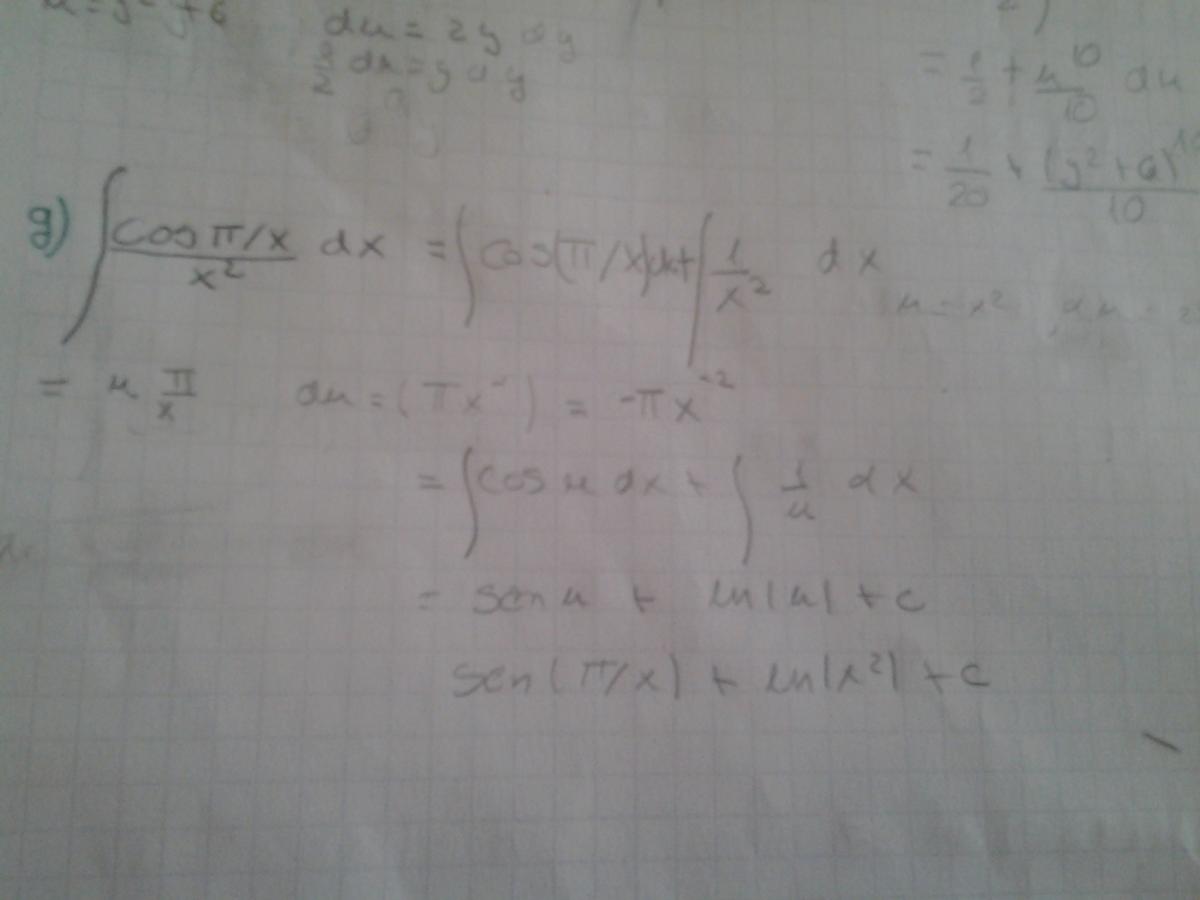 du = 2y dy
= 1/2 + u^10/10 du
= 1/20 + (y² + 6)^10/10
g) ∫ cos π/x / x² dx = ∫ cos(π/x)dx + ∫ 1/x² dx
u = x², du =
= u π/x du = (πx⁻) = -πx⁻²
= ∫ cos u dx + ∫ 1/u dx
= sen u + ln|u| + c
sen(π/x) + ln|x²| + c